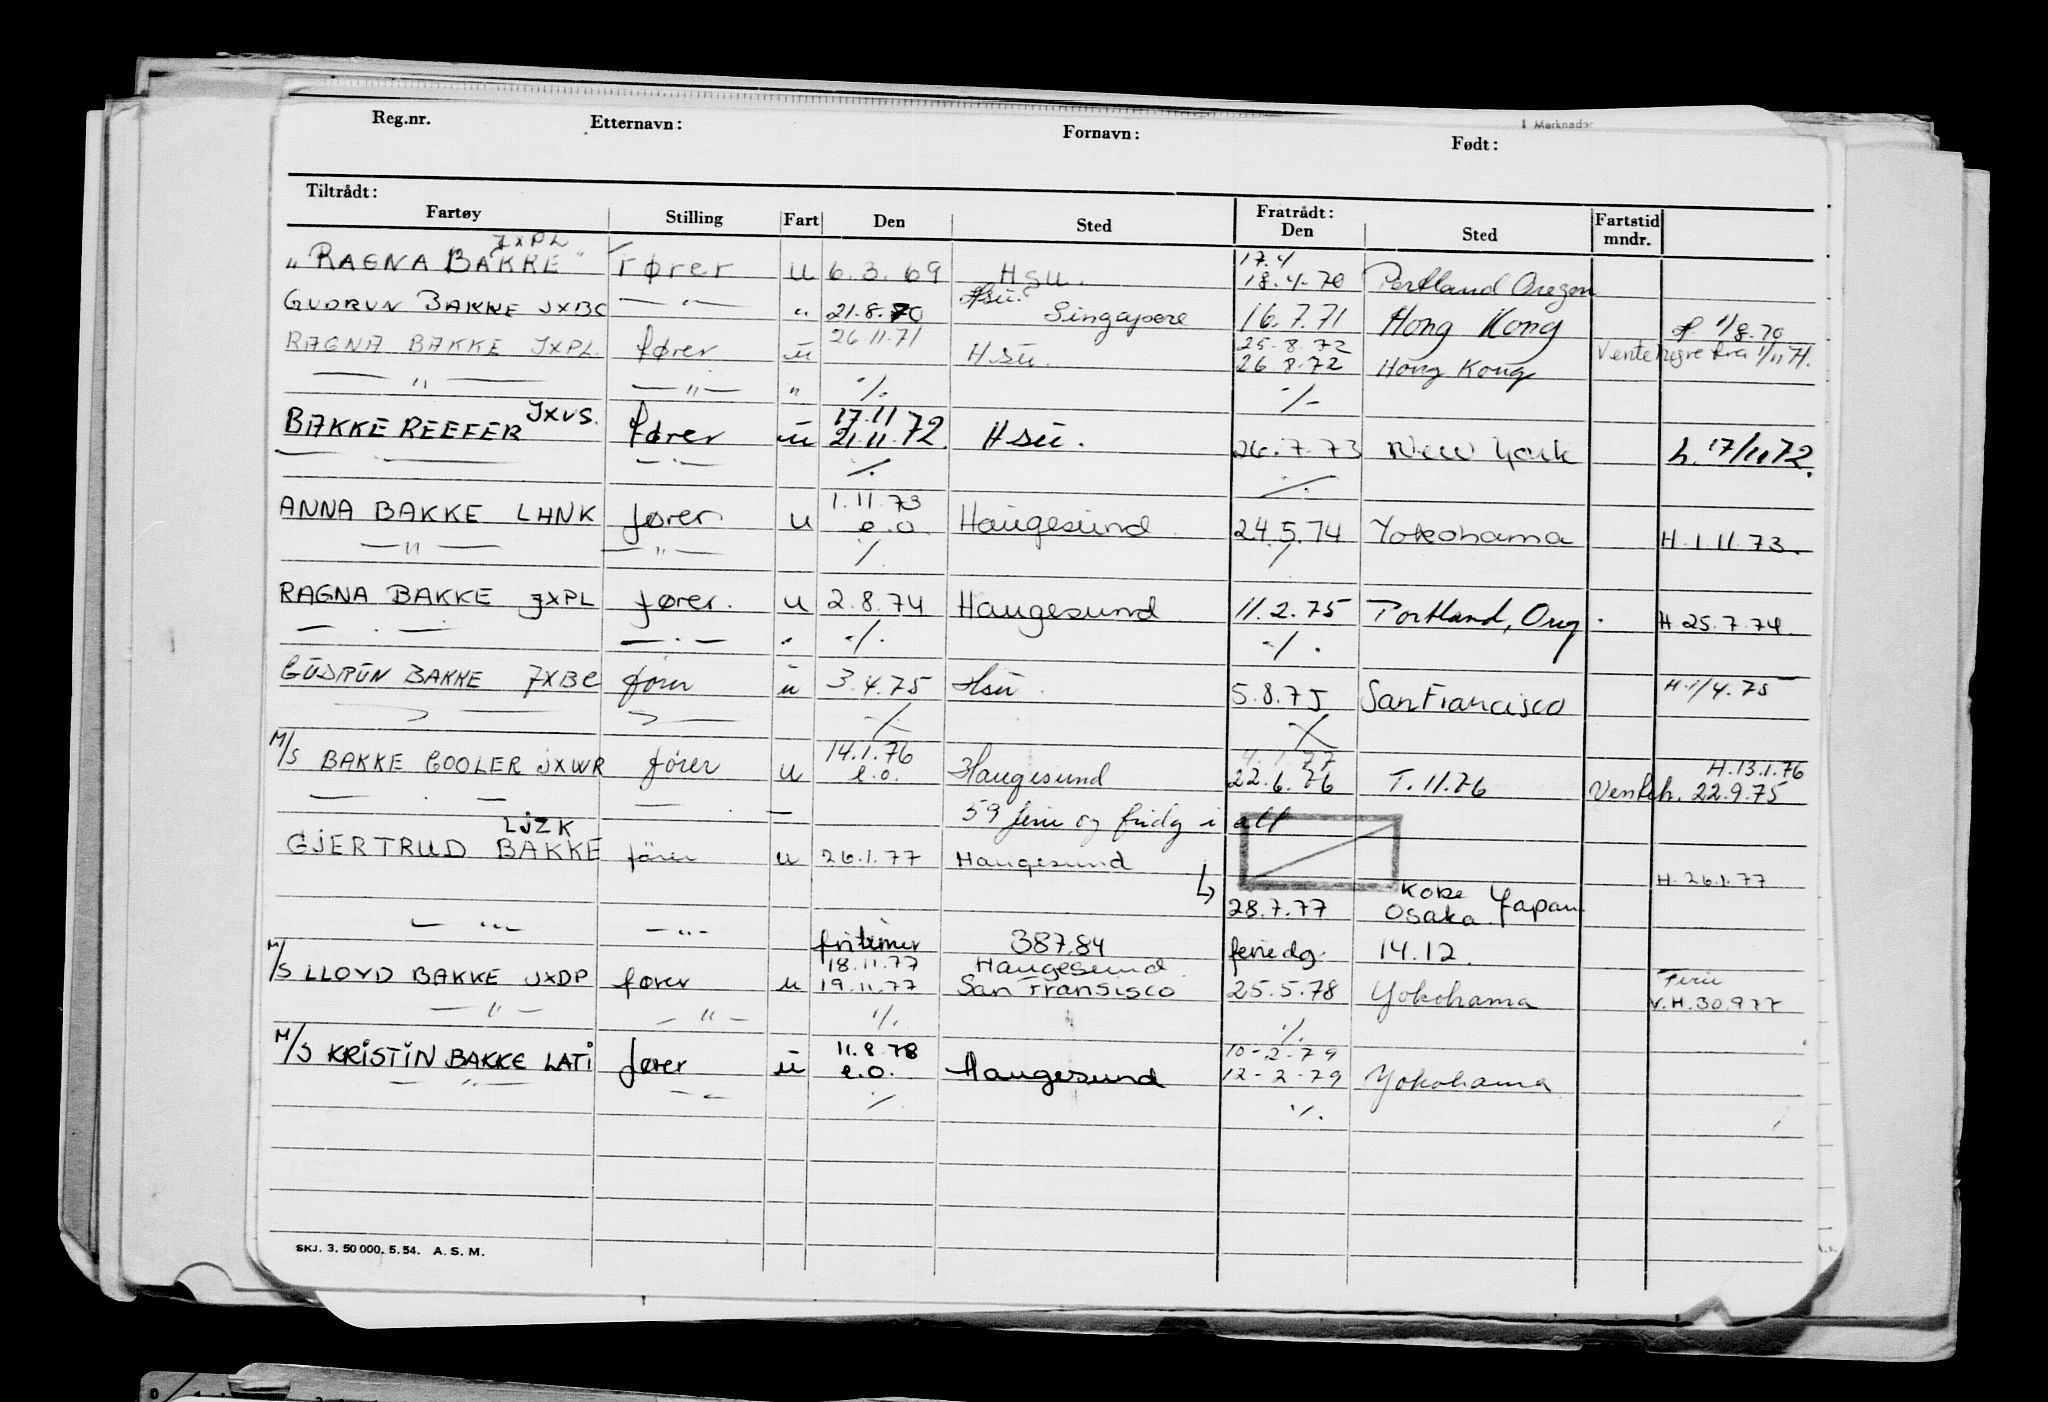 Merknader
Reg.nr. Etternavn: Fornavn: Født:
Tiltrådt: Fratrådt:
Fartøy Stilling Fart Den Sted Den Sted Fartstid mndr.
JXPL 17.4
"RAGNA BAKKE" Fører u 6.3.69 Hsu. 18.4.70 Portland Oregon
Hsu.
GUDRUN BAKKE JXBC — " — " 21.8.70 Singapore 16.7.71 Hong Kong 1/8.70
26.11.71 25.8.72
RAGNA BAKKE JXPL. fører u Hsu. 26.8.72 Hong Kong Ventehyre fra 1/11 71.
— " — — " — " ./. ./.
JXVS. 17.11
BAKKE REEFER fører u 21.11.72. Hsu. 26.7.73 New York h. 17/11 72.
— — — . — ./. ./.
1.11.73
ANNA BAKKE LHNK fører u e.o. Haugesund 24.5.74 Yokohama H.1.11.73.
— " — — " — ./. ./.
RAGNA BAKKE JXPL fører. u 2.8.74 Haugesund 11.2.75 Portland, Oreg. H.25.7.74.
— . — — . — " ./. ./.
GUDRUN BAKKE JXBC fører u 3.4.75 Hsu. 5.8.75 San Francisco H.1/4.75
./. ./.
14.1.76 4.1.77 H.13.1.76
M/S BAKKE COOLER JXWR fører u e.o. Haugesund 22.6.76 T.11.76 Venteh. 22.9.75
— . — — — 59 ferie og fridg i alt
LJZK
GJERTRUD BAKKE fører u 26.1.77 Haugesund H.26.1.77
KOBE
28.7.77 OSAKA Japan
— " — — " — fritimer 387.84 feriedg. 14.12.
18.11.77 Haugesund Ferie
M/S LLOYD BAKKE JXDP fører u 19.11.77 San Fransisco 25.5.78 Yokohama V.H.30.9.77
— " — — " — ./. ./.
11.8.78 10-2-79
M/S KRISTIN BAKKE LATI fører u e.o. Haugesund 12-2-79 Yokohama
— " — — " — ./. ./.
SKJ. 3. 50 000. 5. 54. A. S. M.